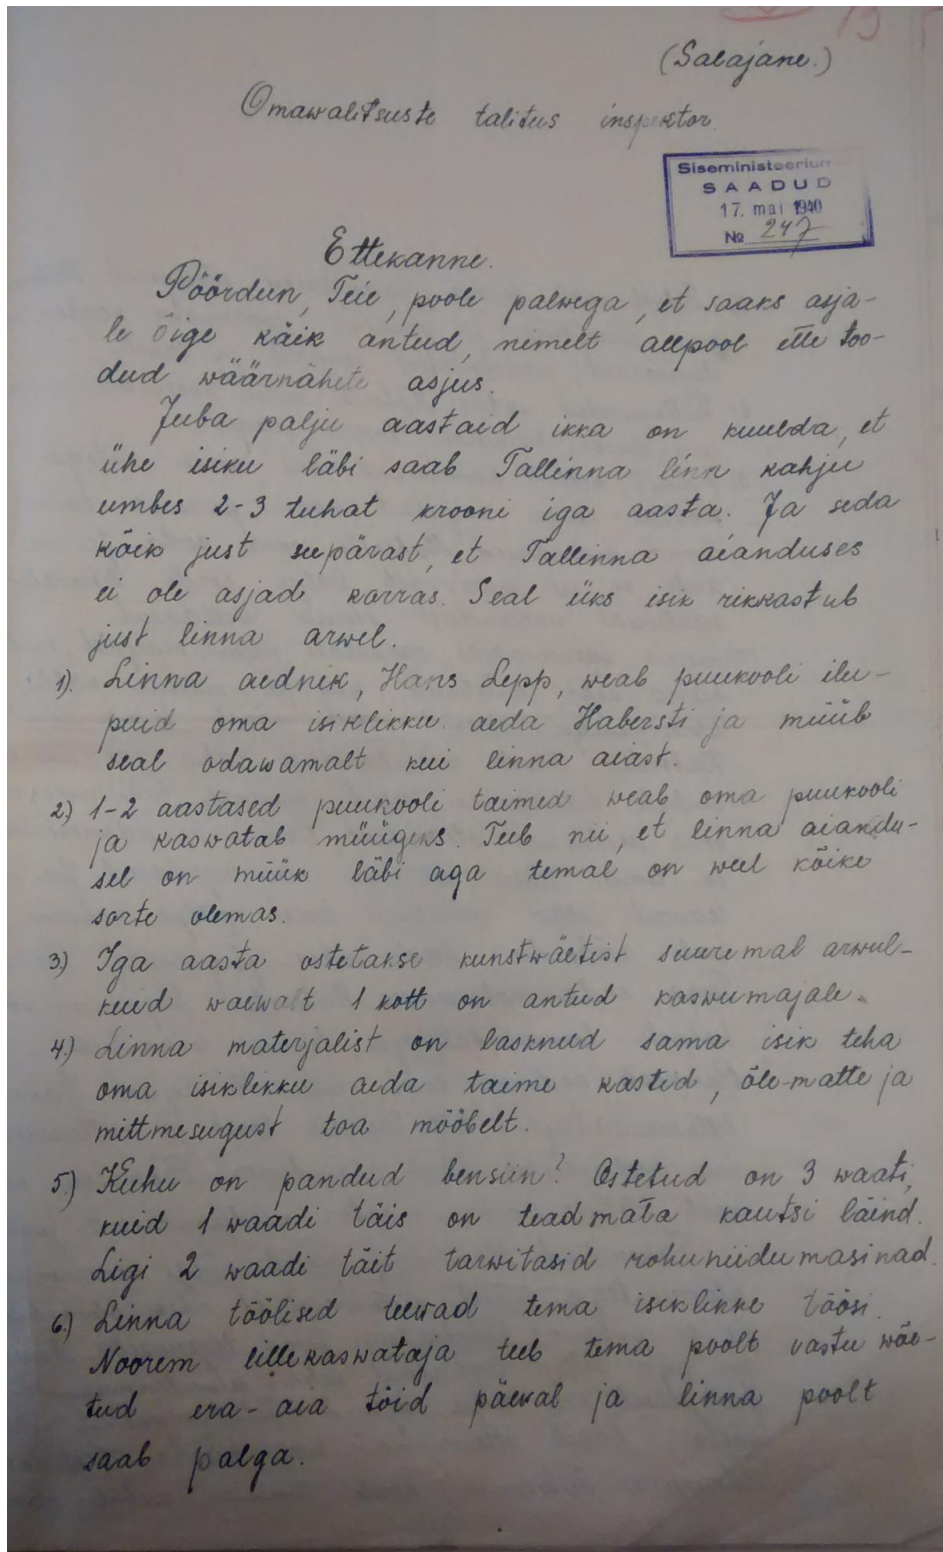 (Salajane.)
Omawalitsuste talitus inspektor
Siseministeerium
SAADUD
17. mai 1940
№ 247
Ettekanne.
Pöördun, Teie, poole palwega, et saaks asja-
le õige käik antud, nimelt allpool ette too-
dud wäärnähete asjus.
Juba palju aastaid ikka on kuulda, et
ühe isiku läbi saab Tallinna linn kahju
umbes 2-3 tuhat krooni iga aasta. Ja seda
kõik just seepärast, et Tallinna aianduses
ei ole asjad korras. Seal üks isik rikkastub
just linna arwel.
1). Linna aednik, Hans Lepp, weab puukooli ilu-
puid oma isiklikku aeda Habersti ja müüb
seal odawamalt kui linna aiast.
2.) 1-2 aastased puukooli taimed weab oma puukooli
ja kaswatab müügiks. Teeb nii, et linna aiandu-
sel on müük läbi aga temal on weel kõike
sorte olemas.
3.) Iga aasta ostetakse kunstwäetist suuremal arwul-
kuid waewalt 1 kott on antud kaswumajale.
4.) Linna materjalist on lasknud sama isik teha
oma isiklikku aeda taime kastid, õle-matte ja
mittmesugust toa mööbelt.
5.) Kuhu on pandud bensiin? Ostetud on 3 waati,
kuid 1 waadi täis on teadmata kautsi läind.
Ligi 2 waadi täit tarwitasid rohuniidumasinad.
6.) Linna töölised teewad tema isiklikke töösi.
Noorem lillekaswataja teeb tema poolt vastu wõe-
tud era-aia töid päewal ja linna poolt
saab palga.